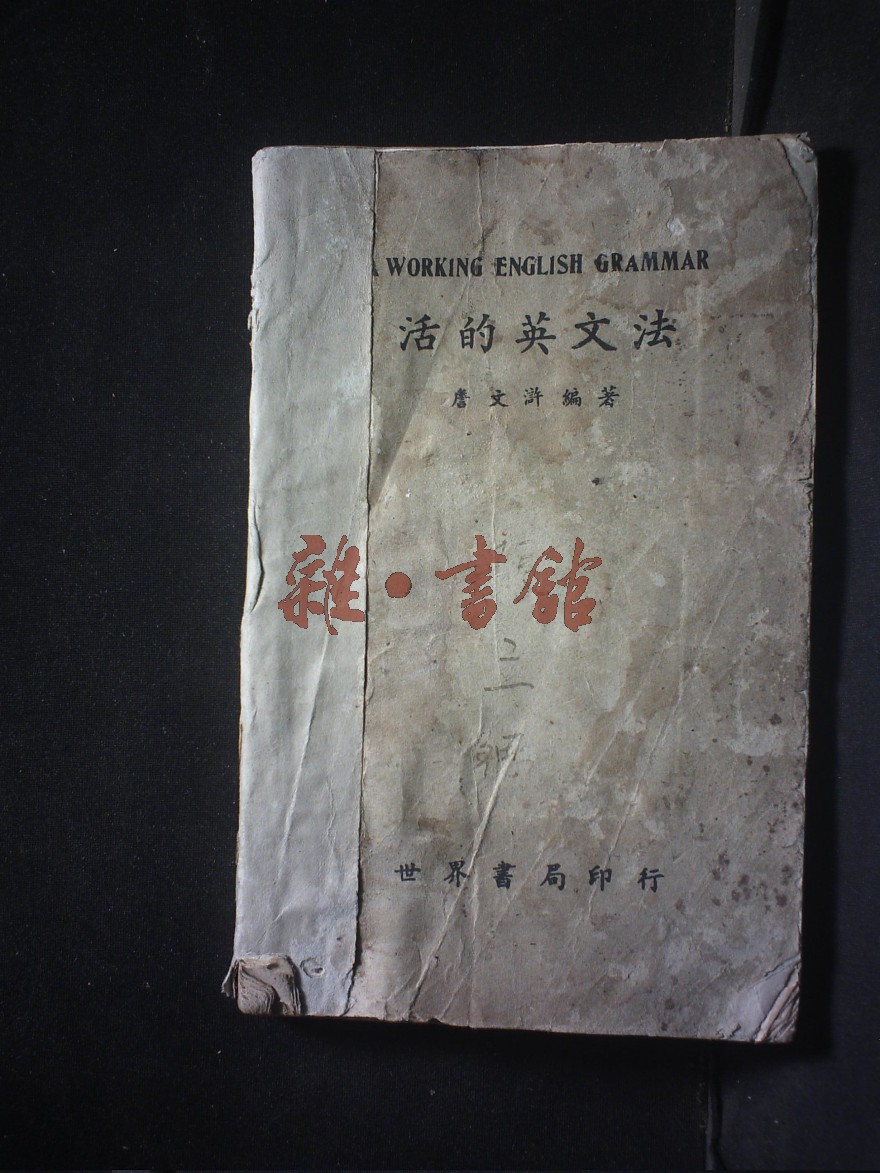 A WORKING ENGLISH GRAMMAR
活的英文法
詹文滸編著
雜·書館
世界書局印行